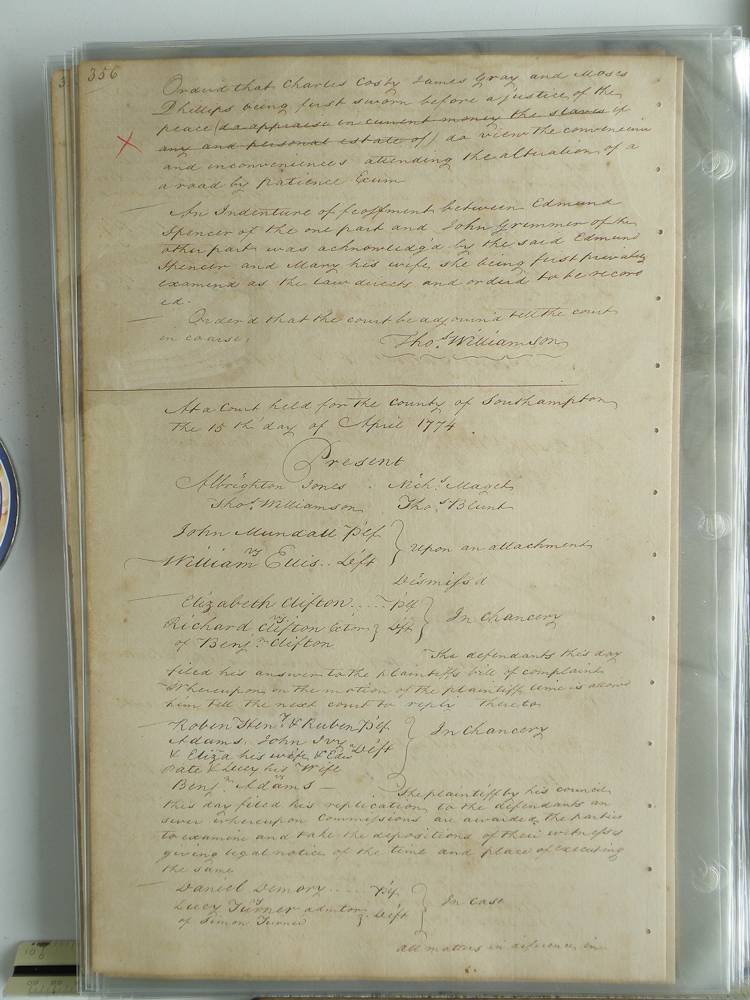 356
Orderd that Charles Cosby James Gray and Moses
Phillips being first sworn before a justice of the
peace (do appraise in current money the slaves if
any and personal estate of) do view the conveniencies
and inconveniences attending the alteration of a
a road by Patience Exum
An Indenture of feoffment between Edmund
Spencer of the one part and John Grimmer of the
other part was acknowledg'd by the said Edmund
Spencer and Mary his wife, she being first privately
examined as the law directs and orderd to be record
ed.
Order'd that the court be adjourn'd till the court
in course.
Thos. Williamson
At a Court held for the County of Southampton
the 15 th day of April 1774
Present
Albrighton Jones Nichs. Maget
Thos. Williamson Thos. Blunt
John Mundall Plf
vs
William Ellis .. Deft
upon an attachment
Dismissd
Elizabeth Clifton .... Plf
vs
Richard Clifton Extor Deft
of Benjn. Clifton
In Chancery
The defendant this day
filed his answer to the plaintiffs bill of complaint
Whereupon on the motion of the plaintiff time is allowd
him till the next court to reply thereto
Robin Henry & Ruben Plf
Adams, John Ivy
& Eliza his wife & Edw Deft
Pate & Lucy his Wife
vs
Benjn. Adams —
In Chancery
The plaintiff by his council
this day filed his replication to the defendants an
swer whereupon Commissions are awarded the parties
to examine and take the depositions of their witnesses
giving legal notice of the time and place of executing
the same
Daniel Demory ..... Plf
vs
Lucy Turner admtor Deft
of Simon Turner
In Case
all matters in diference in